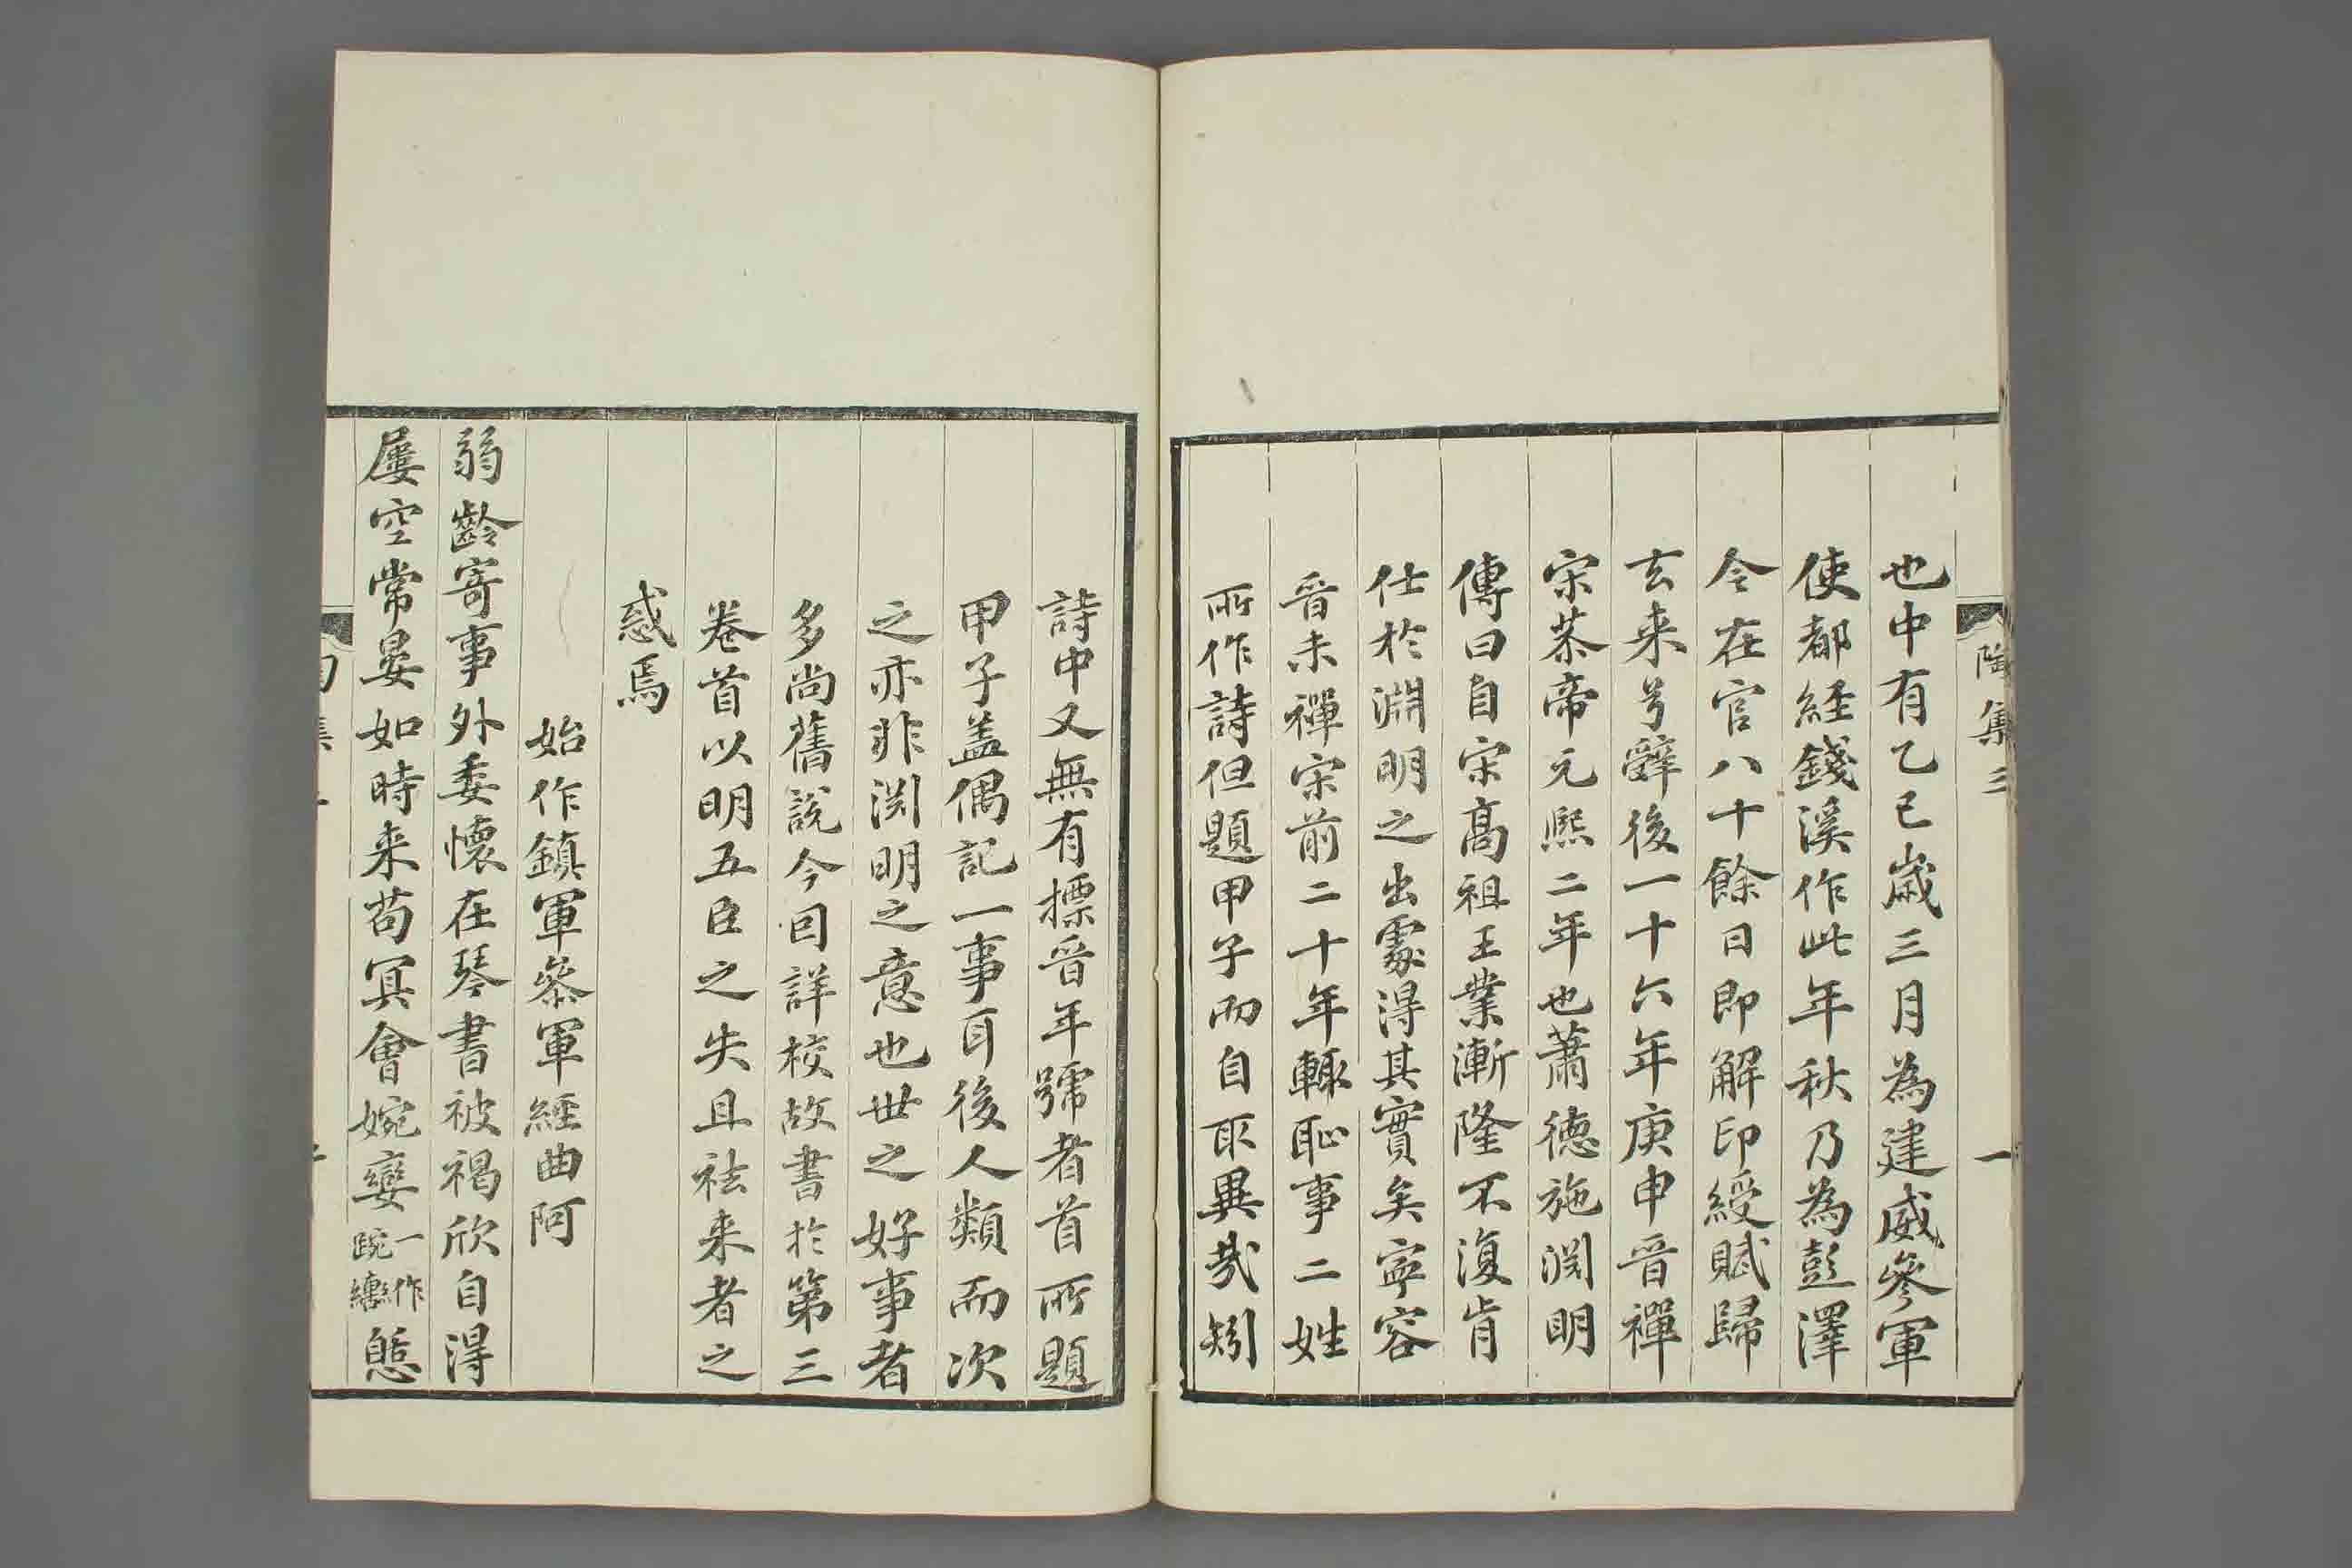 陶集三 一
也中有乙巳歲三月為建威參軍
使都經錢溪作此年秋乃為彭澤
令在官八十餘日即解印綬賦歸
去来兮辭後一十六年庚申晉禪
宋恭帝元熙二年也蕭德施淵明
傳曰自宋高祖王業漸隆不復肯
仕於淵明之出處得其實矣寧容
晉未禪宋前二十年輒恥事二姓
所作詩但題甲子而自取異哉矧
詩中又無有標晉年號者首所題
甲子盖偶記一事耳後人類而次
之亦非渕明之意也世之好事者
多尚舊說今因詳校故書於第三
卷首以明五臣之失且祛来者之
惑焉
始作鎮軍參軍經曲阿
弱齡寄事外委懷在琴書被褐欣自得
屢空常晏如時来苟冥會婉孌一作踠轡憩